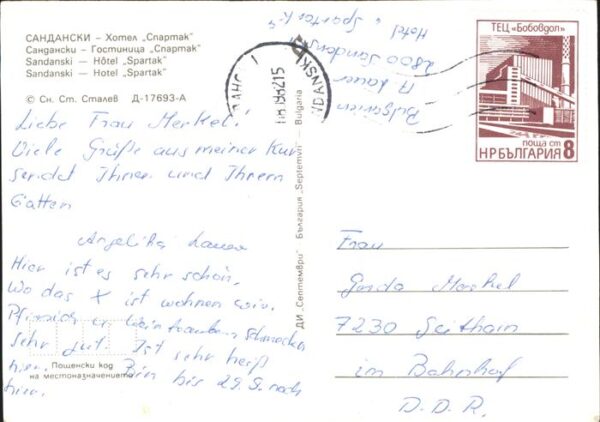 САНДАНСКИ – Хотел „Спартак“
Сандански – Гостиница „Спартак“
Sandanski – Hôtel „Spartak“
Sandanski – Hotel „Spartak“
© Сн. Ст. Сталев Д-17693-А
Liebe Frau Merkel!
Viele Grüße aus meiner Kur
sendet Ihnen und Ihrem
Gatten
Angelika
Hier ist es sehr schön,
Wo das X ist wohnen wir.
Pfirsich u Weintrauben schmecken
sehr gut. Ist sehr heiß
hier. Bin bis 29.9. noch
hier.
Пощенски код
на местоназначението
ДИ „Септември“ България „Septemvri“ Bulgaria
Bulgarien
2800 Sandanski
Hotel „Spartak“
ТЕЦ «Бобовдол»
поща ст
НР БЪЛГАРИЯ 8
Frau
Gerda Merkel
7230 Geithain
im Bahnhof
D.D.R.